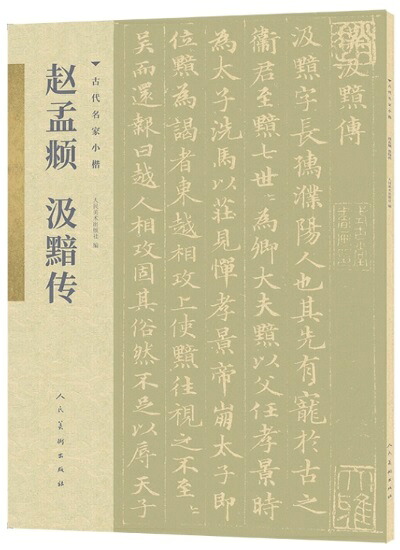 古代名家小楷
赵孟頫 汲黯传
人民美术出版社 编
人民美术出版社
汲黯傳
汲黯字長孺濮陽人也其先有寵於古之
衞君至黯七世世為卿大夫黯以父任孝景時
為太子洗馬以莊見憚孝景帝崩太子即
位黯為謁者東越相攻上使黯往視之不至
吴而還報曰越人相攻固其俗然不足以辱天子